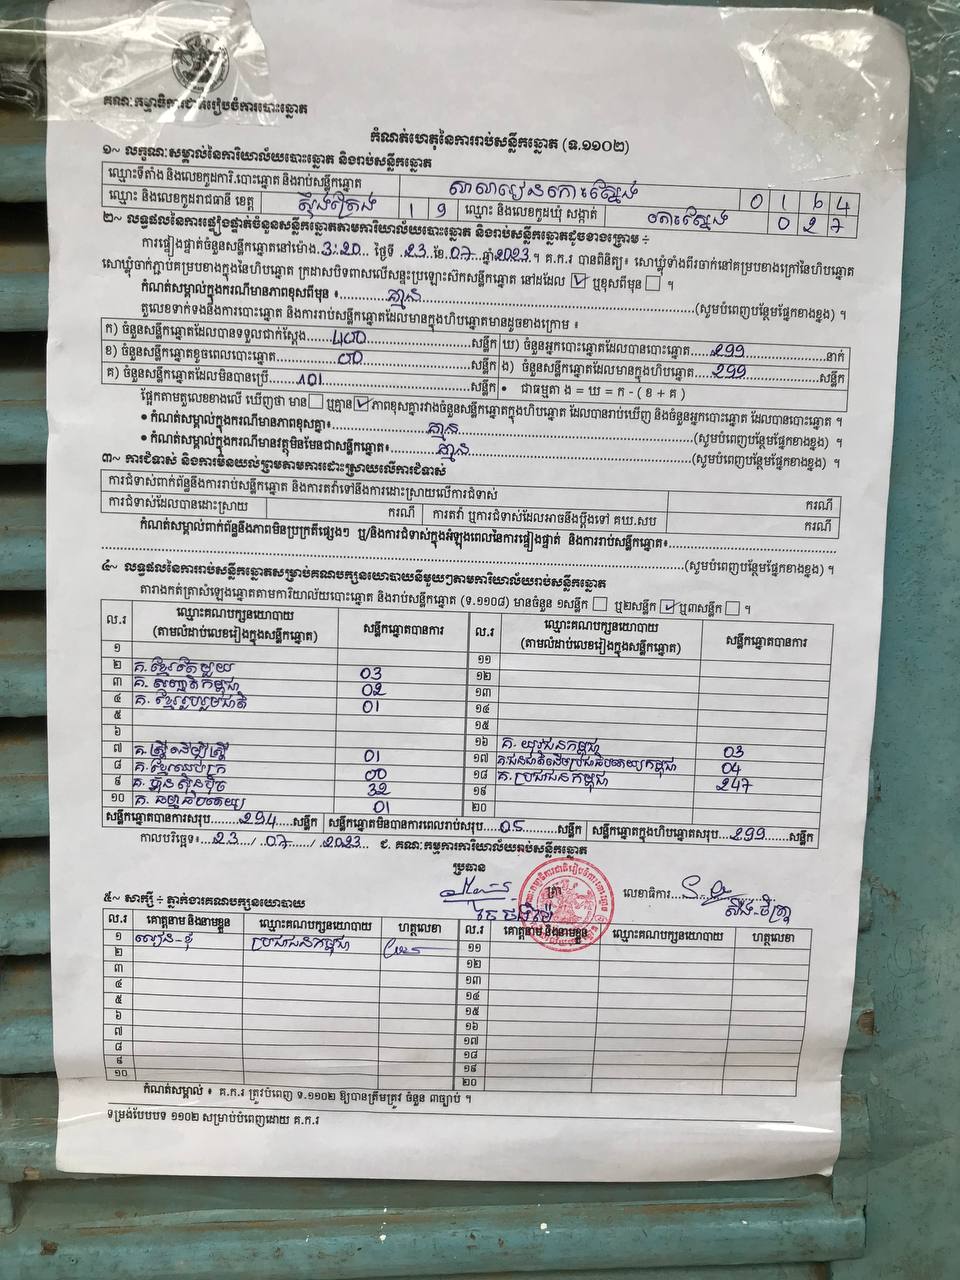 គណៈកម្មាធិការជាតិរៀបចំការបោះឆ្នោត
កំណត់ហេតុនៃការរាប់សន្លឹកឆ្នោត (ទ.១១០២)
១~ លក្ខណៈសម្គាល់នៃការិយាល័យបោះឆ្នោត និងរាប់សន្លឹកឆ្នោត
ឈ្មោះទីតាំង និងលេខកូដការិ.បោះឆ្នោត និងរាប់សន្លឹកឆ្នោត សាលារៀនកោះស្នែង 0 1 6 4
ឈ្មោះ និងលេខកូដរាជធានី ខេត្ត ស្ទឹងត្រែង 1 9 ឈ្មោះ និងលេខកូដឃុំ សង្កាត់ កោះស្នែង 0 2 7
២~ លទ្ធផលនៃការផ្ទៀងផ្ទាត់ចំនួនសន្លឹកឆ្នោតតាមការិយាល័យបោះឆ្នោត និងរាប់សន្លឹកឆ្នោតដូចខាងក្រោម ÷
ការផ្ទៀងផ្ទាត់ចំនួនសន្លឹកឆ្នោតនៅម៉ោង 3:20 ថ្ងៃទី 23 ខែ 07 ឆ្នាំ 2023 ។ គ.ក.រ បានពិនិត្យ៖ សោឃ្លុំទាំងពីរចាក់នៅគម្របខាងក្រៅនៃហិបឆ្នោត
សោឃ្លុំចាក់ភ្ជាប់គម្របខាងក្នុងនៃហិបឆ្នោត ក្រដាសបិទពាសលើសន្ទះប្រឡោះស៊កសន្លឹកឆ្នោត នៅដដែល ✓ ឬខុសពីមុន ។
កំណត់សម្គាល់ក្នុងករណីមានភាពខុសពីមុន ៖ គ្មាន (សូមបំពេញបន្ថែមផ្នែកខាងខ្នង) ។
តួលេខទាក់ទងនឹងការបោះឆ្នោត និងការរាប់សន្លឹកឆ្នោតដែលមានក្នុងហិបឆ្នោតមានដូចខាងក្រោម ៖
ក) ចំនួនសន្លឹកឆ្នោតដែលបានទទួលជាក់ស្តែង 400 សន្លឹក ឃ) ចំនួនអ្នកបោះឆ្នោតដែលបានបោះឆ្នោត 299 នាក់
ខ) ចំនួនសន្លឹកឆ្នោតខូចពេលបោះឆ្នោត 00 សន្លឹក ង) ចំនួនសន្លឹកឆ្នោតដែលមានក្នុងហិបឆ្នោត 299 សន្លឹក
គ) ចំនួនសន្លឹកឆ្នោតដែលមិនបានប្រើ 101 សន្លឹក • ជាធម្មតា ង = ឃ = ក - ( ខ + គ )
ផ្អែកតាមតួលេខខាងលើ ឃើញថា មាន ឬគ្មាន ✓ ភាពខុសគ្នារវាងចំនួនសន្លឹកឆ្នោតក្នុងហិបឆ្នោត ដែលបានរាប់ឃើញ និងចំនួនអ្នកបោះឆ្នោត ដែលបានបោះឆ្នោត ។
• កំណត់សម្គាល់ក្នុងករណីមានភាពខុសគ្នា៖ គ្មាន (សូមបំពេញបន្ថែមផ្នែកខាងខ្នង) ។
• កំណត់សម្គាល់ក្នុងករណីមានវត្ថុមិនមែនជាសន្លឹកឆ្នោត៖ គ្មាន (សូមបំពេញបន្ថែមផ្នែកខាងខ្នង) ។
៣~ ការជំទាស់ និងការមិនយល់ព្រមតាមការដោះស្រាយលើការជំទាស់
ការជំទាស់ពាក់ព័ន្ធនឹងការរាប់សន្លឹកឆ្នោត និងការតវ៉ាទៅនឹងការដោះស្រាយលើការជំទាស់ ករណី
ការជំទាស់ដែលបានដោះស្រាយ ករណី ការតវ៉ា ឬការជំទាស់ដែលអាចនឹងប្តឹងទៅ គឃ.សប ករណី
កំណត់សម្គាល់ពាក់ព័ន្ធនឹងភាពមិនប្រក្រតីផ្សេងៗ ឬ/និងការជំទាស់ក្នុងអំឡុងពេលនៃការផ្ទៀងផ្ទាត់ និងការរាប់សន្លឹកឆ្នោត៖
(សូមបំពេញបន្ថែមផ្នែកខាងខ្នង) ។
៤~ លទ្ធផលនៃការរាប់សន្លឹកឆ្នោតសម្រាប់គណបក្សនយោបាយនីមួយៗតាមការិយាល័យរាប់សន្លឹកឆ្នោត
តារាងកត់ត្រាសំឡេងឆ្នោតតាមការិយាល័យបោះឆ្នោត និងរាប់សន្លឹកឆ្នោត (ទ.១១០៨) មានចំនួន ១សន្លឹក ឬ២សន្លឹក ✓ ឬ៣សន្លឹក ។
ល.រ ឈ្មោះគណបក្សនយោបាយ (តាមលំដាប់លេខរៀងក្នុងសន្លឹកឆ្នោត) សន្លឹកឆ្នោតបានការ ល.រ ឈ្មោះគណបក្សនយោបាយ (តាមលំដាប់លេខរៀងក្នុងសន្លឹកឆ្នោត) សន្លឹកឆ្នោតបានការ
១ ១១
២ គ.ខ្មែរតែមួយ 03 ១២
៣ គ.សញ្ជាតិកម្ពុជា 02 ១៣
៤ គ.ខ្មែររួបរួមជាតិ 01 ១៤
៥ ១៥
៦ ១៦ គ.យុវជនកម្ពុជា 03
៧ គ.ស្ត្រីដើម្បីស្ត្រី 01 ១៧ គ.ជនជាតិដើមប្រជាធិបតេយ្យកម្ពុជា 04
៨ គ.ខ្មែរឈប់ក្រ 00 ១៨ គ.ប្រជាជនកម្ពុជា 247
៩ គ.ហ៊្វុនស៊ិនប៉ិច 32 ១៩
១០ គ.ធម្មាធិបតេយ្យ 01 ២០
សន្លឹកឆ្នោតបានការសរុប 294 សន្លឹក សន្លឹកឆ្នោតមិនបានការពេលរាប់សរុប 05 សន្លឹក សន្លឹកឆ្នោតក្នុងហិបឆ្នោតសរុប 299 សន្លឹក
កាលបរិច្ឆេទ៖ 23 / 07 / 2023 ជ. គណៈកម្មការការិយាល័យរាប់សន្លឹកឆ្នោត
ប្រធាន
ត្រា លេខាធិការ
៥~ សាក្សី ÷ ភ្នាក់ងារគណបក្សនយោបាយ
ល.រ គោត្តនាម និងនាមខ្លួន ឈ្មោះគណបក្សនយោបាយ ហត្ថលេខា ល.រ គោត្តនាម និងនាមខ្លួន ឈ្មោះគណបក្សនយោបាយ ហត្ថលេខា
១ ប្រជាជនកម្ពុជា ១១
២ ១២
៣ ១៣
៤ ១៤
៥ ១៥
៦ ១៦
៧ ១៧
៨ ១៨
៩ ១៩
១០ ២០
កំណត់សម្គាល់ ៖ គ.ក.រ ត្រូវបំពេញ ទ.១១០២ ឱ្យបានត្រឹមត្រូវ ចំនួន ៣ច្បាប់ ។
ទម្រង់បែបបទ ១១០២ សម្រាប់បំពេញដោយ គ.ក.រ